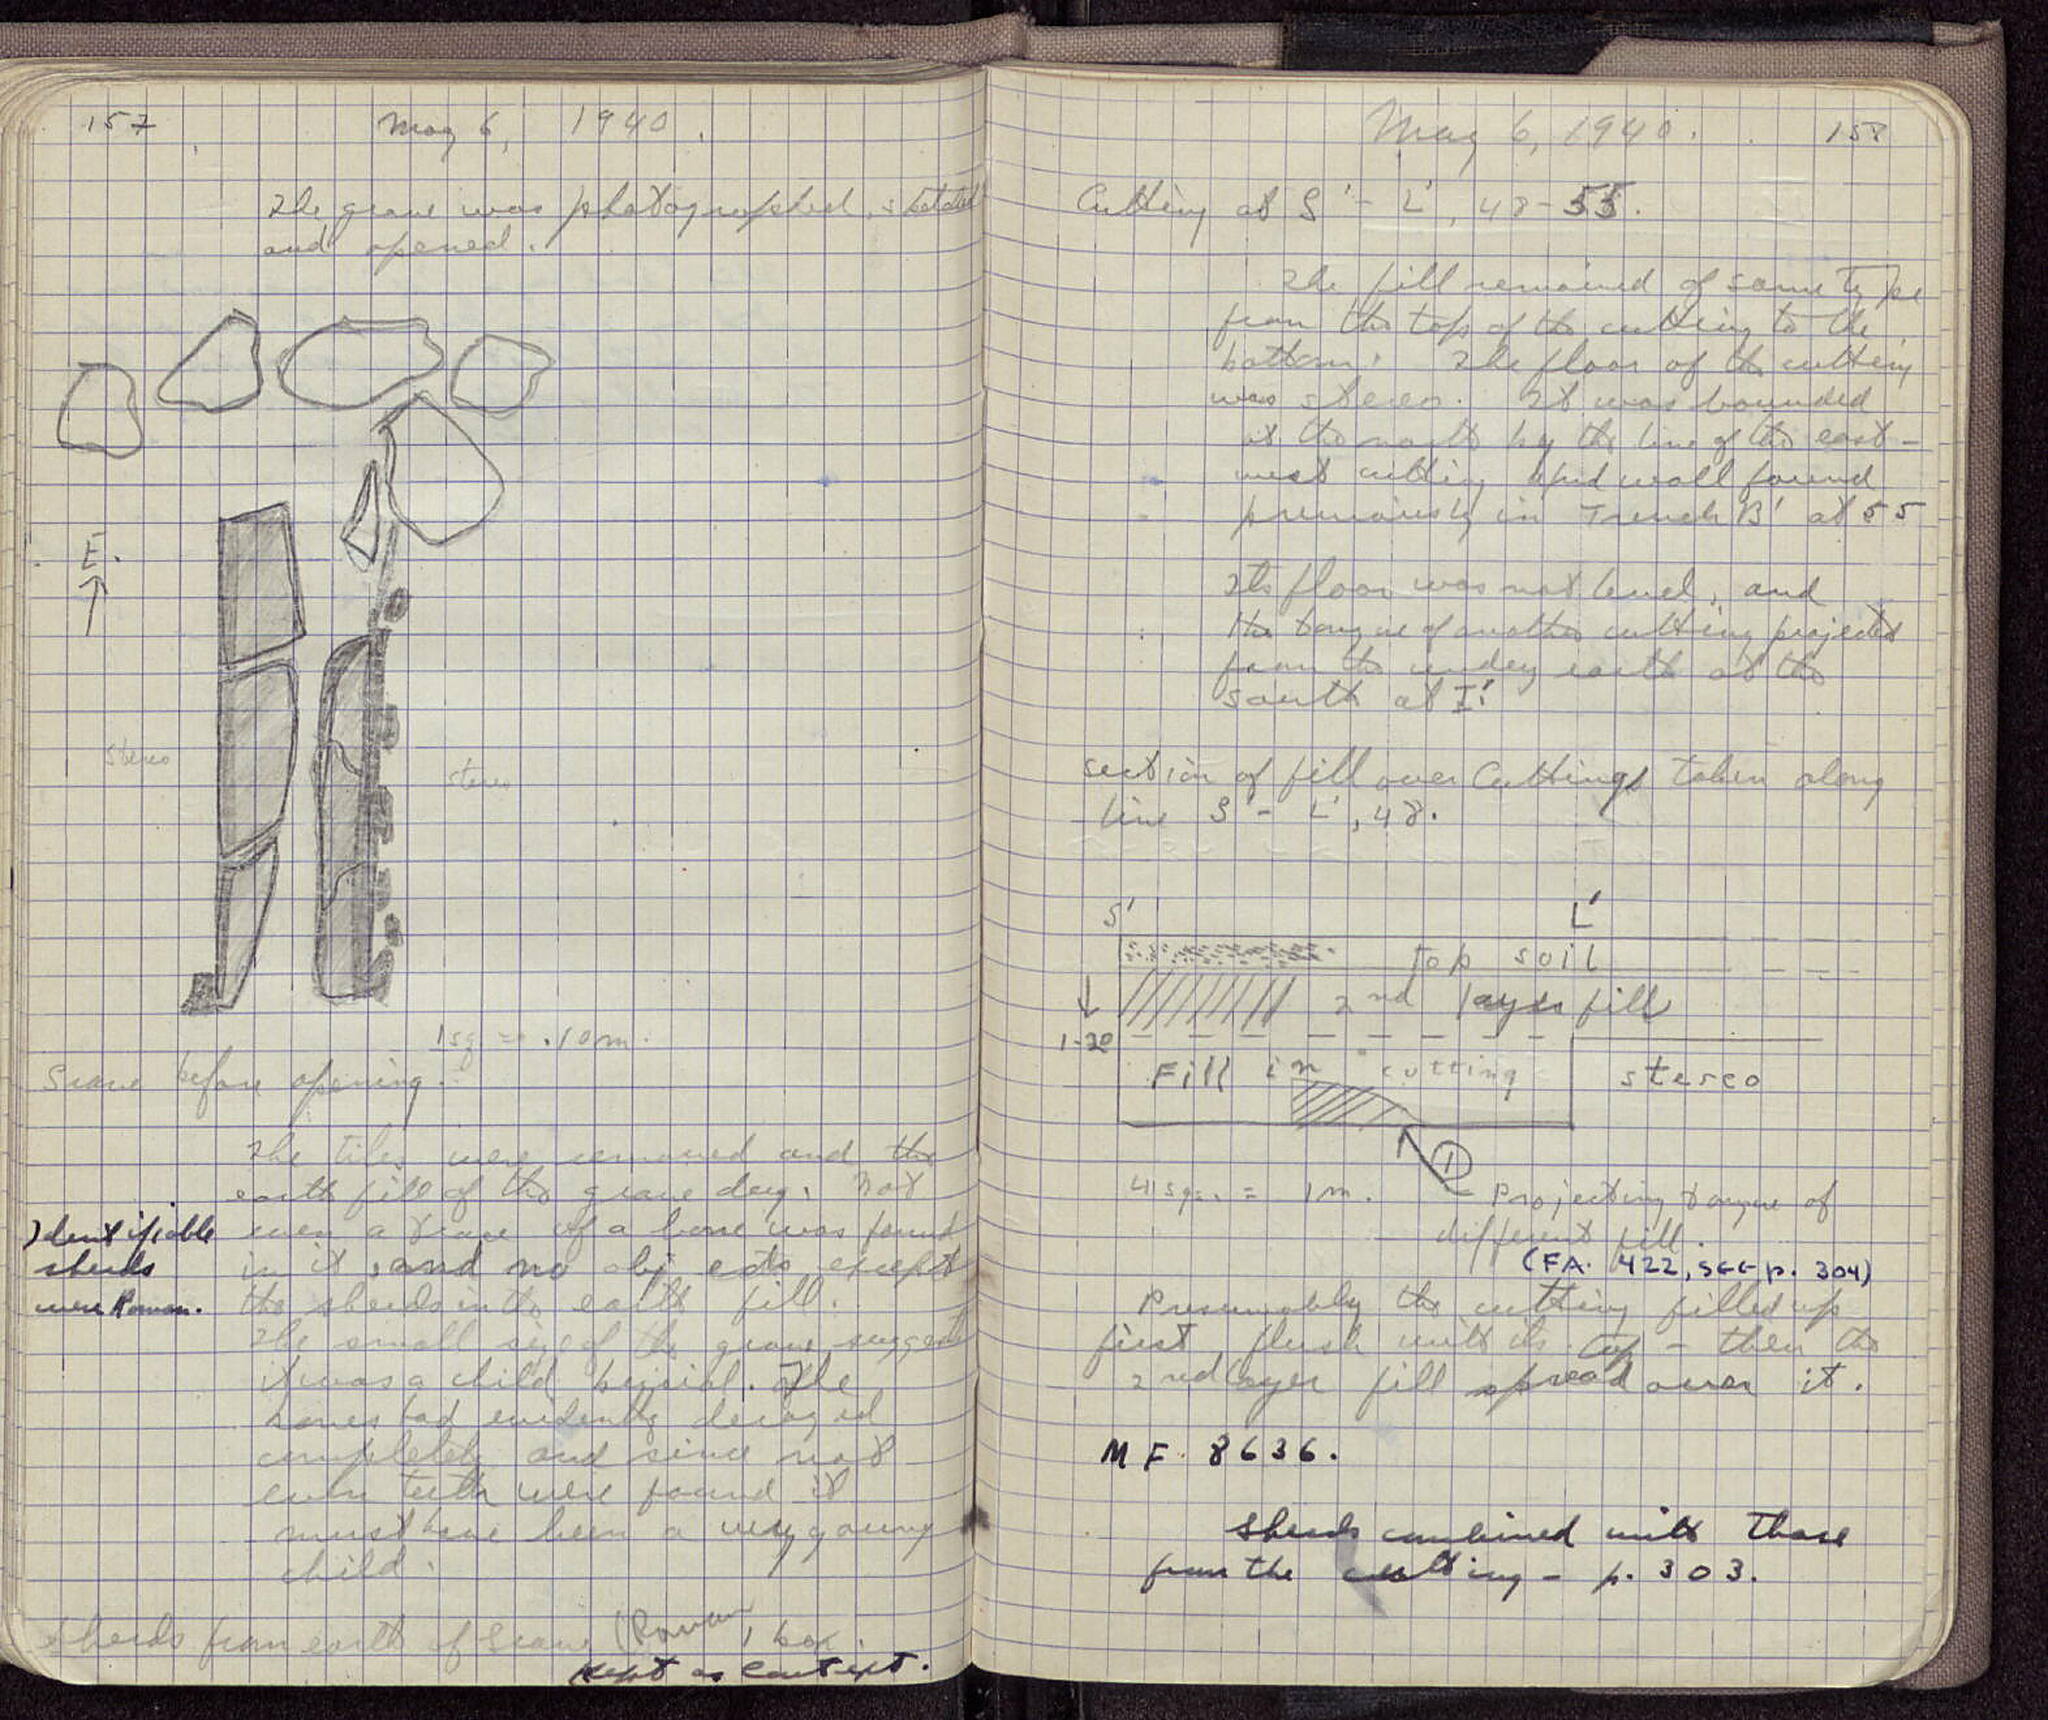 157
May 6, 1940.
The grave was photographed, sketched
and opened.
E.
stereo
stereo
1 sq. = .10 m.
Grave before opening.
The tiles were removed and the
earth fill of the grave dug. Not
even a trace of a bone was found
in it, and no objects except
the sherds in the earth fill.
Identifiable
sherds
were Roman.
The small size of the grave suggests
it was a child burial. The
bones had evidently decayed
completely and since not
even teeth were found it
must have been a very young
child.
Sherds from earth of Grave (Roman) 1 box.
Kept as context.
May 6, 1940.
158
Cutting at S' - L', 48-55.
The fill remained of same type
from the top of the cutting to the
bottom. The floor of the cutting
was stereo. It was bounded
at the north by the line of the east-
west cutting and wall found
previously in Trench B' at 55
Its floor was not level, and
the tongue of another cutting projected
from the undug earth at the
south at I'.
Section of fill over Cuttings taken along
line S' - L', 48.
S'
L'
top soil
2nd layer fill
1.20
Fill in cutting
stereo
1
4 sqs. = 1 m.
Projecting tongue of
different fill.
(FA. 422, SEE p. 304)
Presumably the cutting filled up
first, flush with its top - then the
2nd layer fill spread over it.
MF 8636.
Sherds combined with those
from the cutting - p. 303.